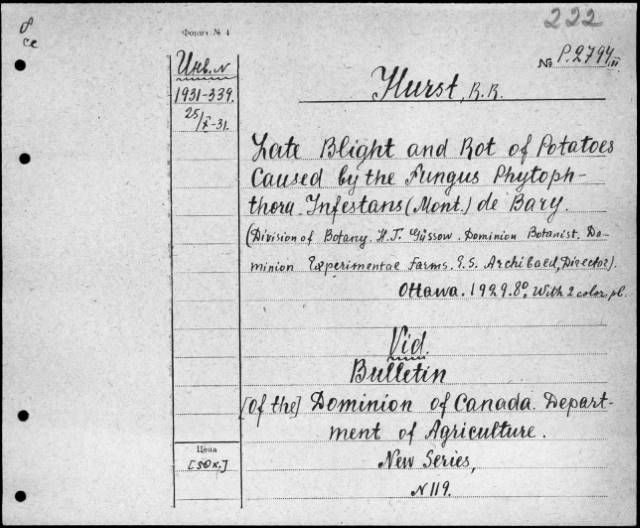 8
ce
222
Форма № 4
Инв. N
1931-339.
25/X-31.
№ P.2794/II
Hurst, R.R.
Late Blight and Rot of Potatoes
Caused by the Fungus Phytoph-
thora Infestans (Mont.) de Bary.
(Division of Botany. H.T. Güssow. Dominion Botanist. Do-
minion Experimental Farms. E.S. Archibald, Director).
Ottawa. 1929. 8°, With 2 color. pl.
Vid.
Bulletin
[of the] Dominion of Canada. Depart-
ment of Agriculture.
New Series,
N 119.
Цена
[50 к.]